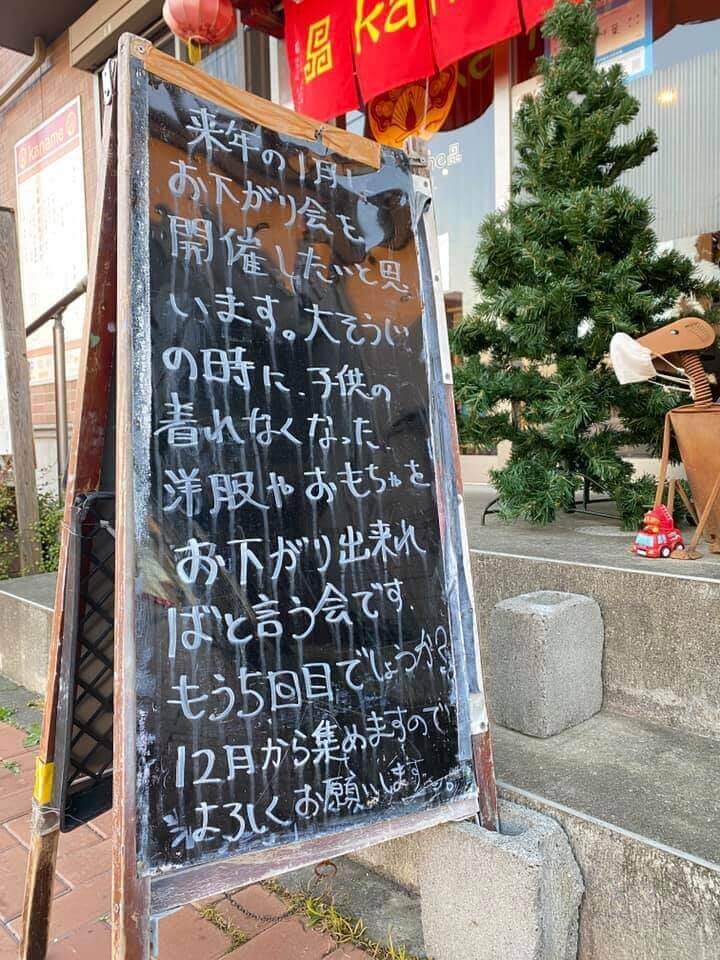 kaname
kaname
来年の1月に
お下がり会を
開催したいと思
います。大そうじ
の時に、子供の
着れなくなった、
洋服やおもちゃを
お下がり出来れ
ばと言う会です。
もう5回目でしょうか?
12月から集めますので
よろしくお願いします。